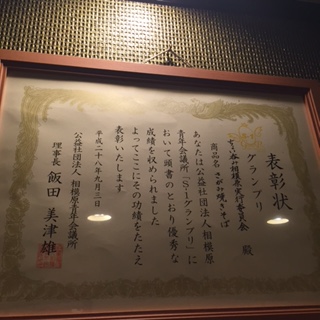 表彰状
グランプリ
商品名 さがみ焼きそば
殿
あなたは公益社団法人相模原
青年会議所「S-1グランプリ」に
おいて頭書のとおり優秀な
成績を収められました
よってここにその功績をたたえ
表彰いたします
平成二十八年九月三日
公益社団法人 相模原青年会議所
理事長 飯田 美津雄